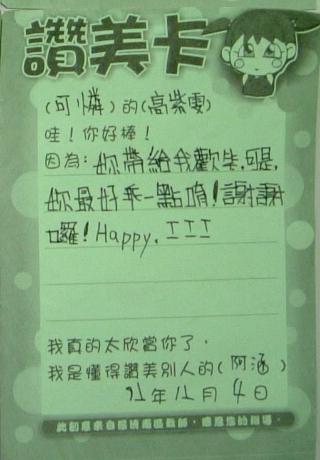 讚美卡
(可憐)的(高紫雯)
哇！你好棒！
因為：妳帶給我歡笑，可是，
妳最好乖一點唷！謝謝
囉！Happy.
我真的太欣當你了，
我是懂得讚美別人的(阿涵)
91年12月4日